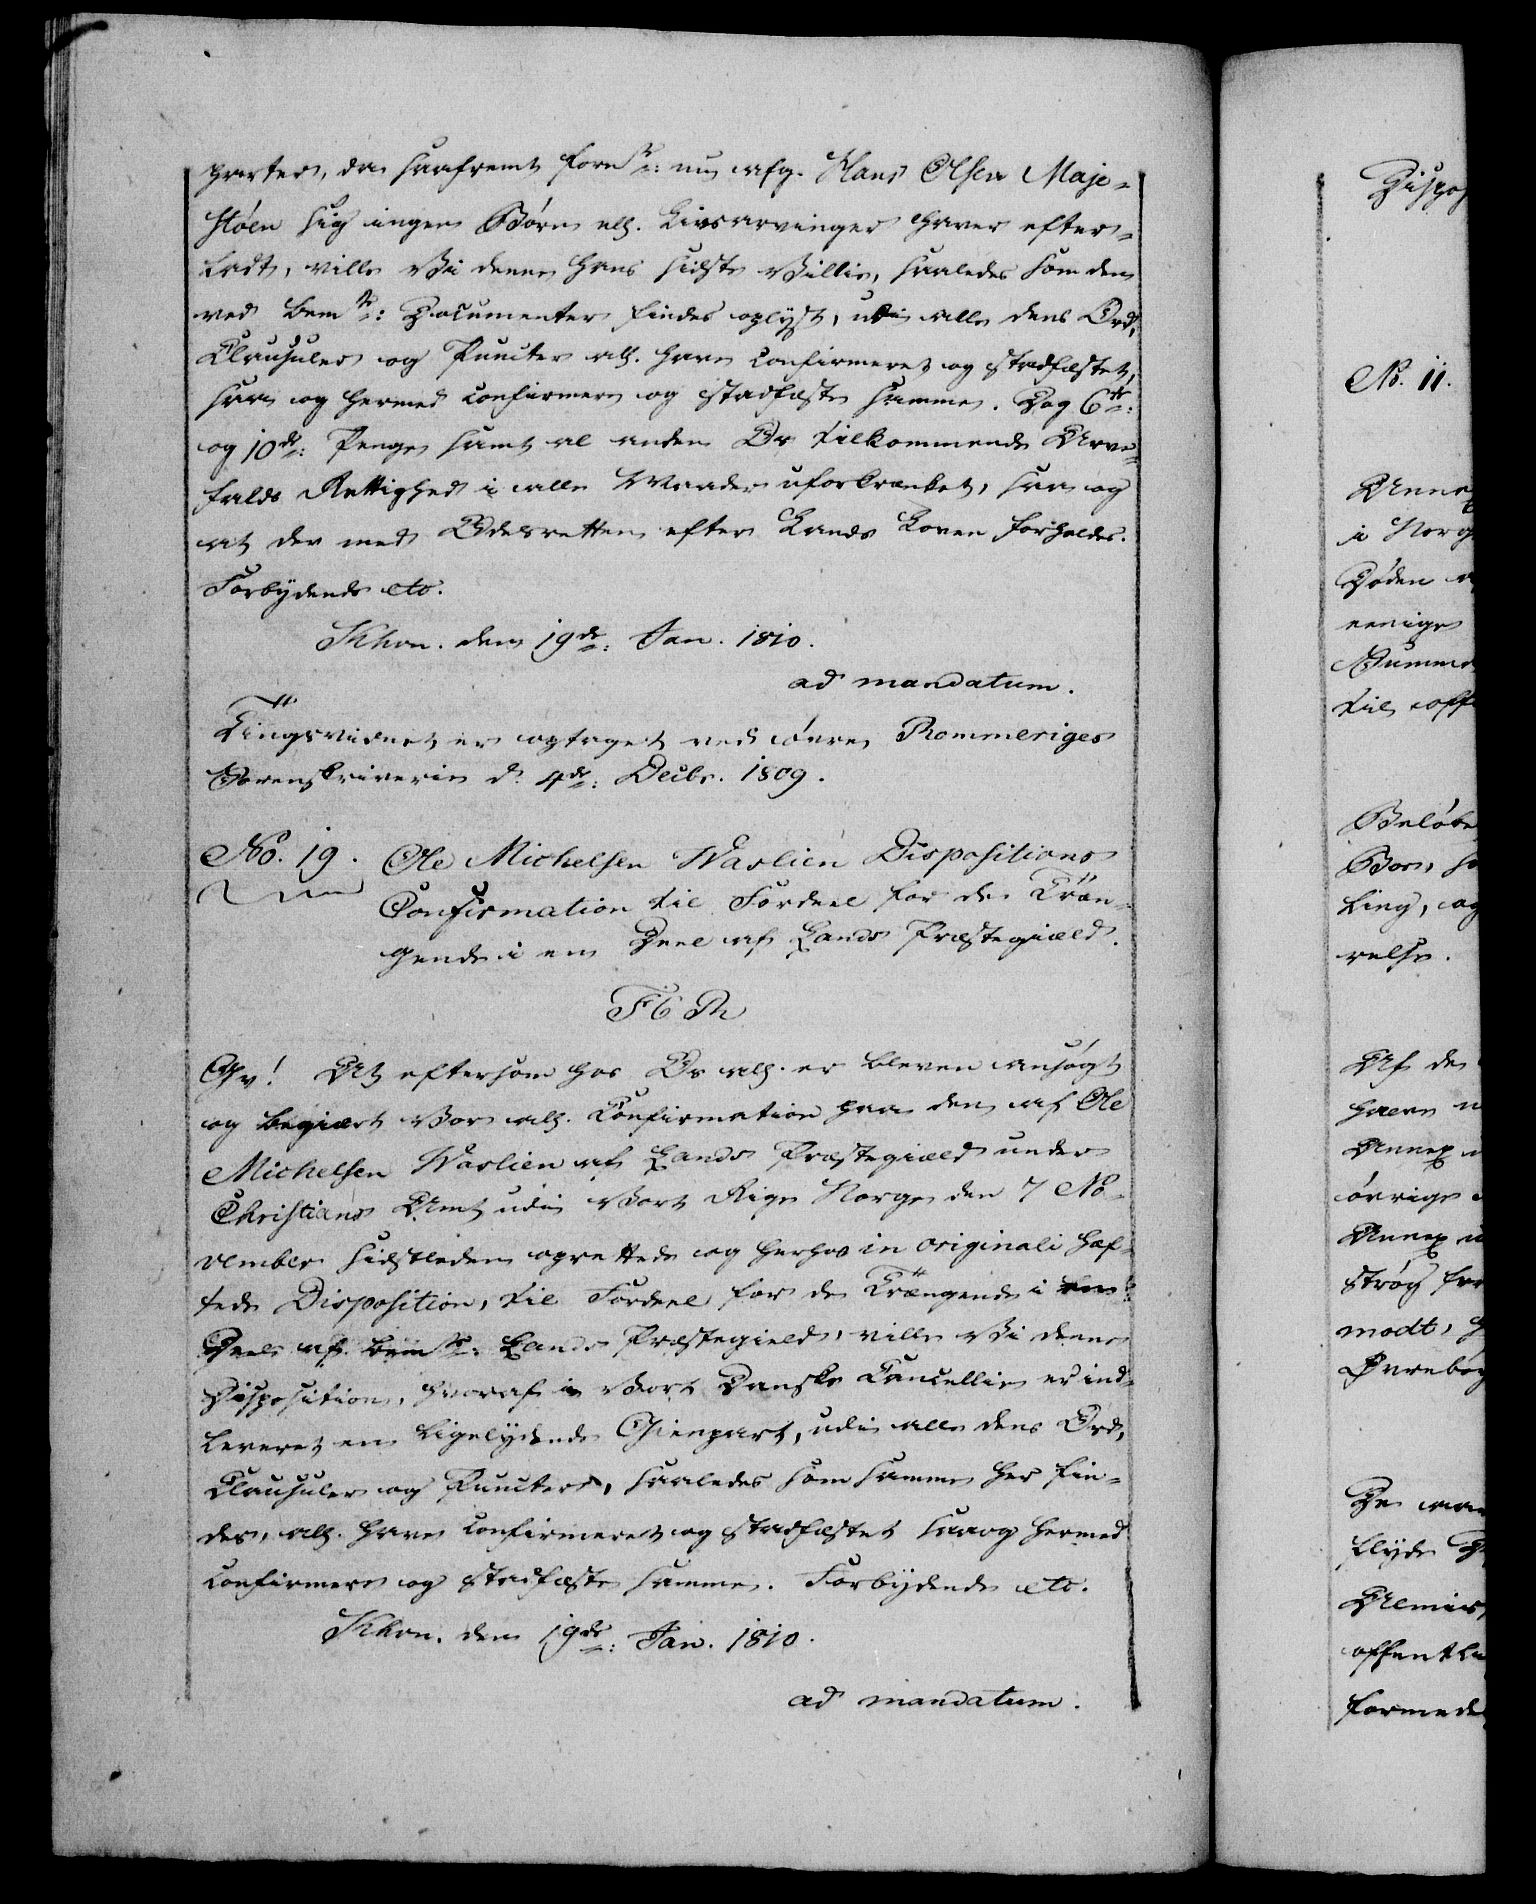 parter, da saafremt forn^te: nu afg. Hans Olsen Maje-
støen sig ingen Børn all. Livsarvinger haver efter-
ladt, ville Vi denne hans sidste Villie, saaledes som den
ved bem^te: Documenter findes oplyst, udi alle dens Ord,
Clausuler og Puncter all. have confirmeret og stadfæstet,
saa og hermed confirmere og stadfæste samme. Dog 6^te:
og 10^de: Penge samt al anden Os tilkommende Arve-
falds Rettighed i alle Maader uforkrænket, saa og
at der med Odelsretten efter Lands Loven forholdes.
Forbydende etc.
Khvn. den 19^de: Jan. 1810.
ad mandatum.
Tingsvidnet er optaget ved øvre Rommeriges
Sorenskriverie d. 4^de: Decbr. 1809.
No. 19. Ole Michelsen Waslien Dispositions
Confirmation til Fordeel for de Træn-
gende i en Deel af Lands Præstegiæld.
F 6 R
Gv! At eftersom hos Os all. er bleven ansøgt
og begiært Vor all. Confirmation paa den af Ole
Michelsen Waslien af Lands Præstegiæld under
Christians Amt udi Vort Rige Norge den 7 No-
vember sidstleden oprettede og herhos in originali hæf-
tede Disposition, til Fordeel for de Trængende i en
Deel af bem^te: Lands Præstegield, ville Vi denne
Disposition, hvoraf i Vort Danske Cancellie er ind-
leveret en ligelydende Gienpart, udi alle dens Ord,
Clausuler og Puncter, saaledes som samme her fin-
des, all. have confirmeret og stadfæstet saa og hermed
confirmere og stadfæste samme. Forbydende etc.
Khvn. den 19^de: Jan. 1810.
ad mandatum.
Dispos
No. 11.
Annex
i Norg
Døden
eenige
Summe
til off
Beløbe
Boe, s
ling, og
relse.
Af de
haern
Annex
øvrige
Annex
strøg fra
modt,
Øvrebøe
De
flyde
Almis
offentli
formede